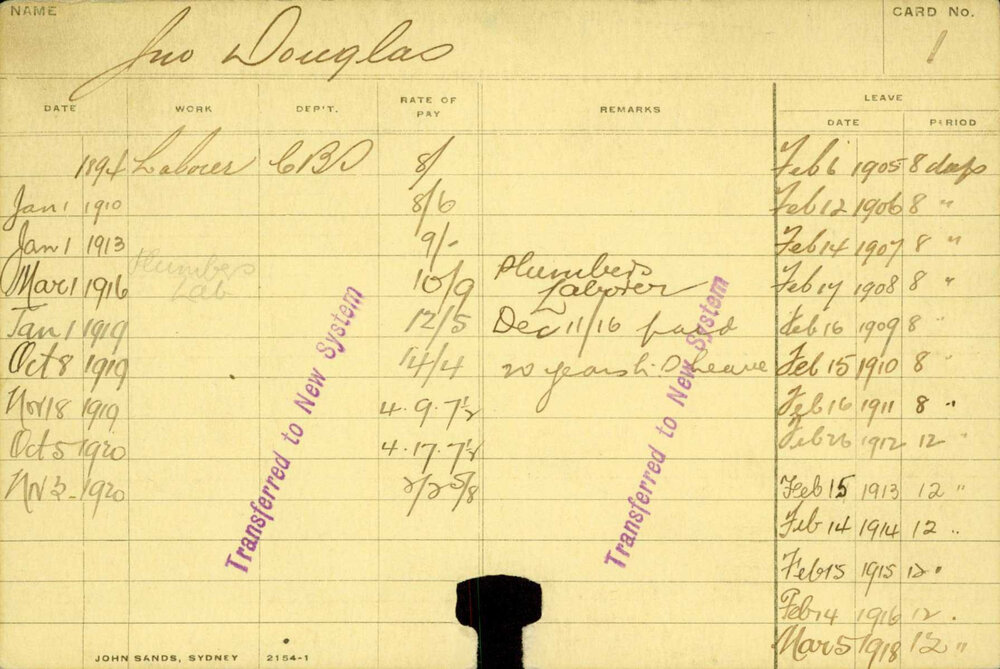 NAME
CARD No.
Jno Douglas
1
DATE WORK DEP'T. RATE OF PAY REMARKS LEAVE
DATE PERIOD
1894 Laborer CBD 8/ Feb 6 1905 8 days
Jan 1 1910 8/6 Feb 12 1906 8 "
Jan 1 1913 9/- Feb 14 1907 8 "
Plumbers Lab
Mar 1 1916 10/9 Plumbers Laborer Feb 17 1908 8 "
Jan 1 1919 12/5 Dec 11/16 paid Feb 16 1909 8
Oct 8 1919 14/4 20 years L.S leave Feb 15 1910 8 "
Nov 18 1919 4.9.7½ Feb 16 1911 8 "
Oct 5 1920 4.17.7½ Feb 26 1912 12 "
Nov 1920 Feb 15 1913 12 "
Feb 14 1914 12 "
Feb 15 1915 12 "
Feb 14 1916 12 "
Mar 5 1918 12 "
Transferred to New System
Transferred to New System
JOHN SANDS, SYDNEY 2154-1